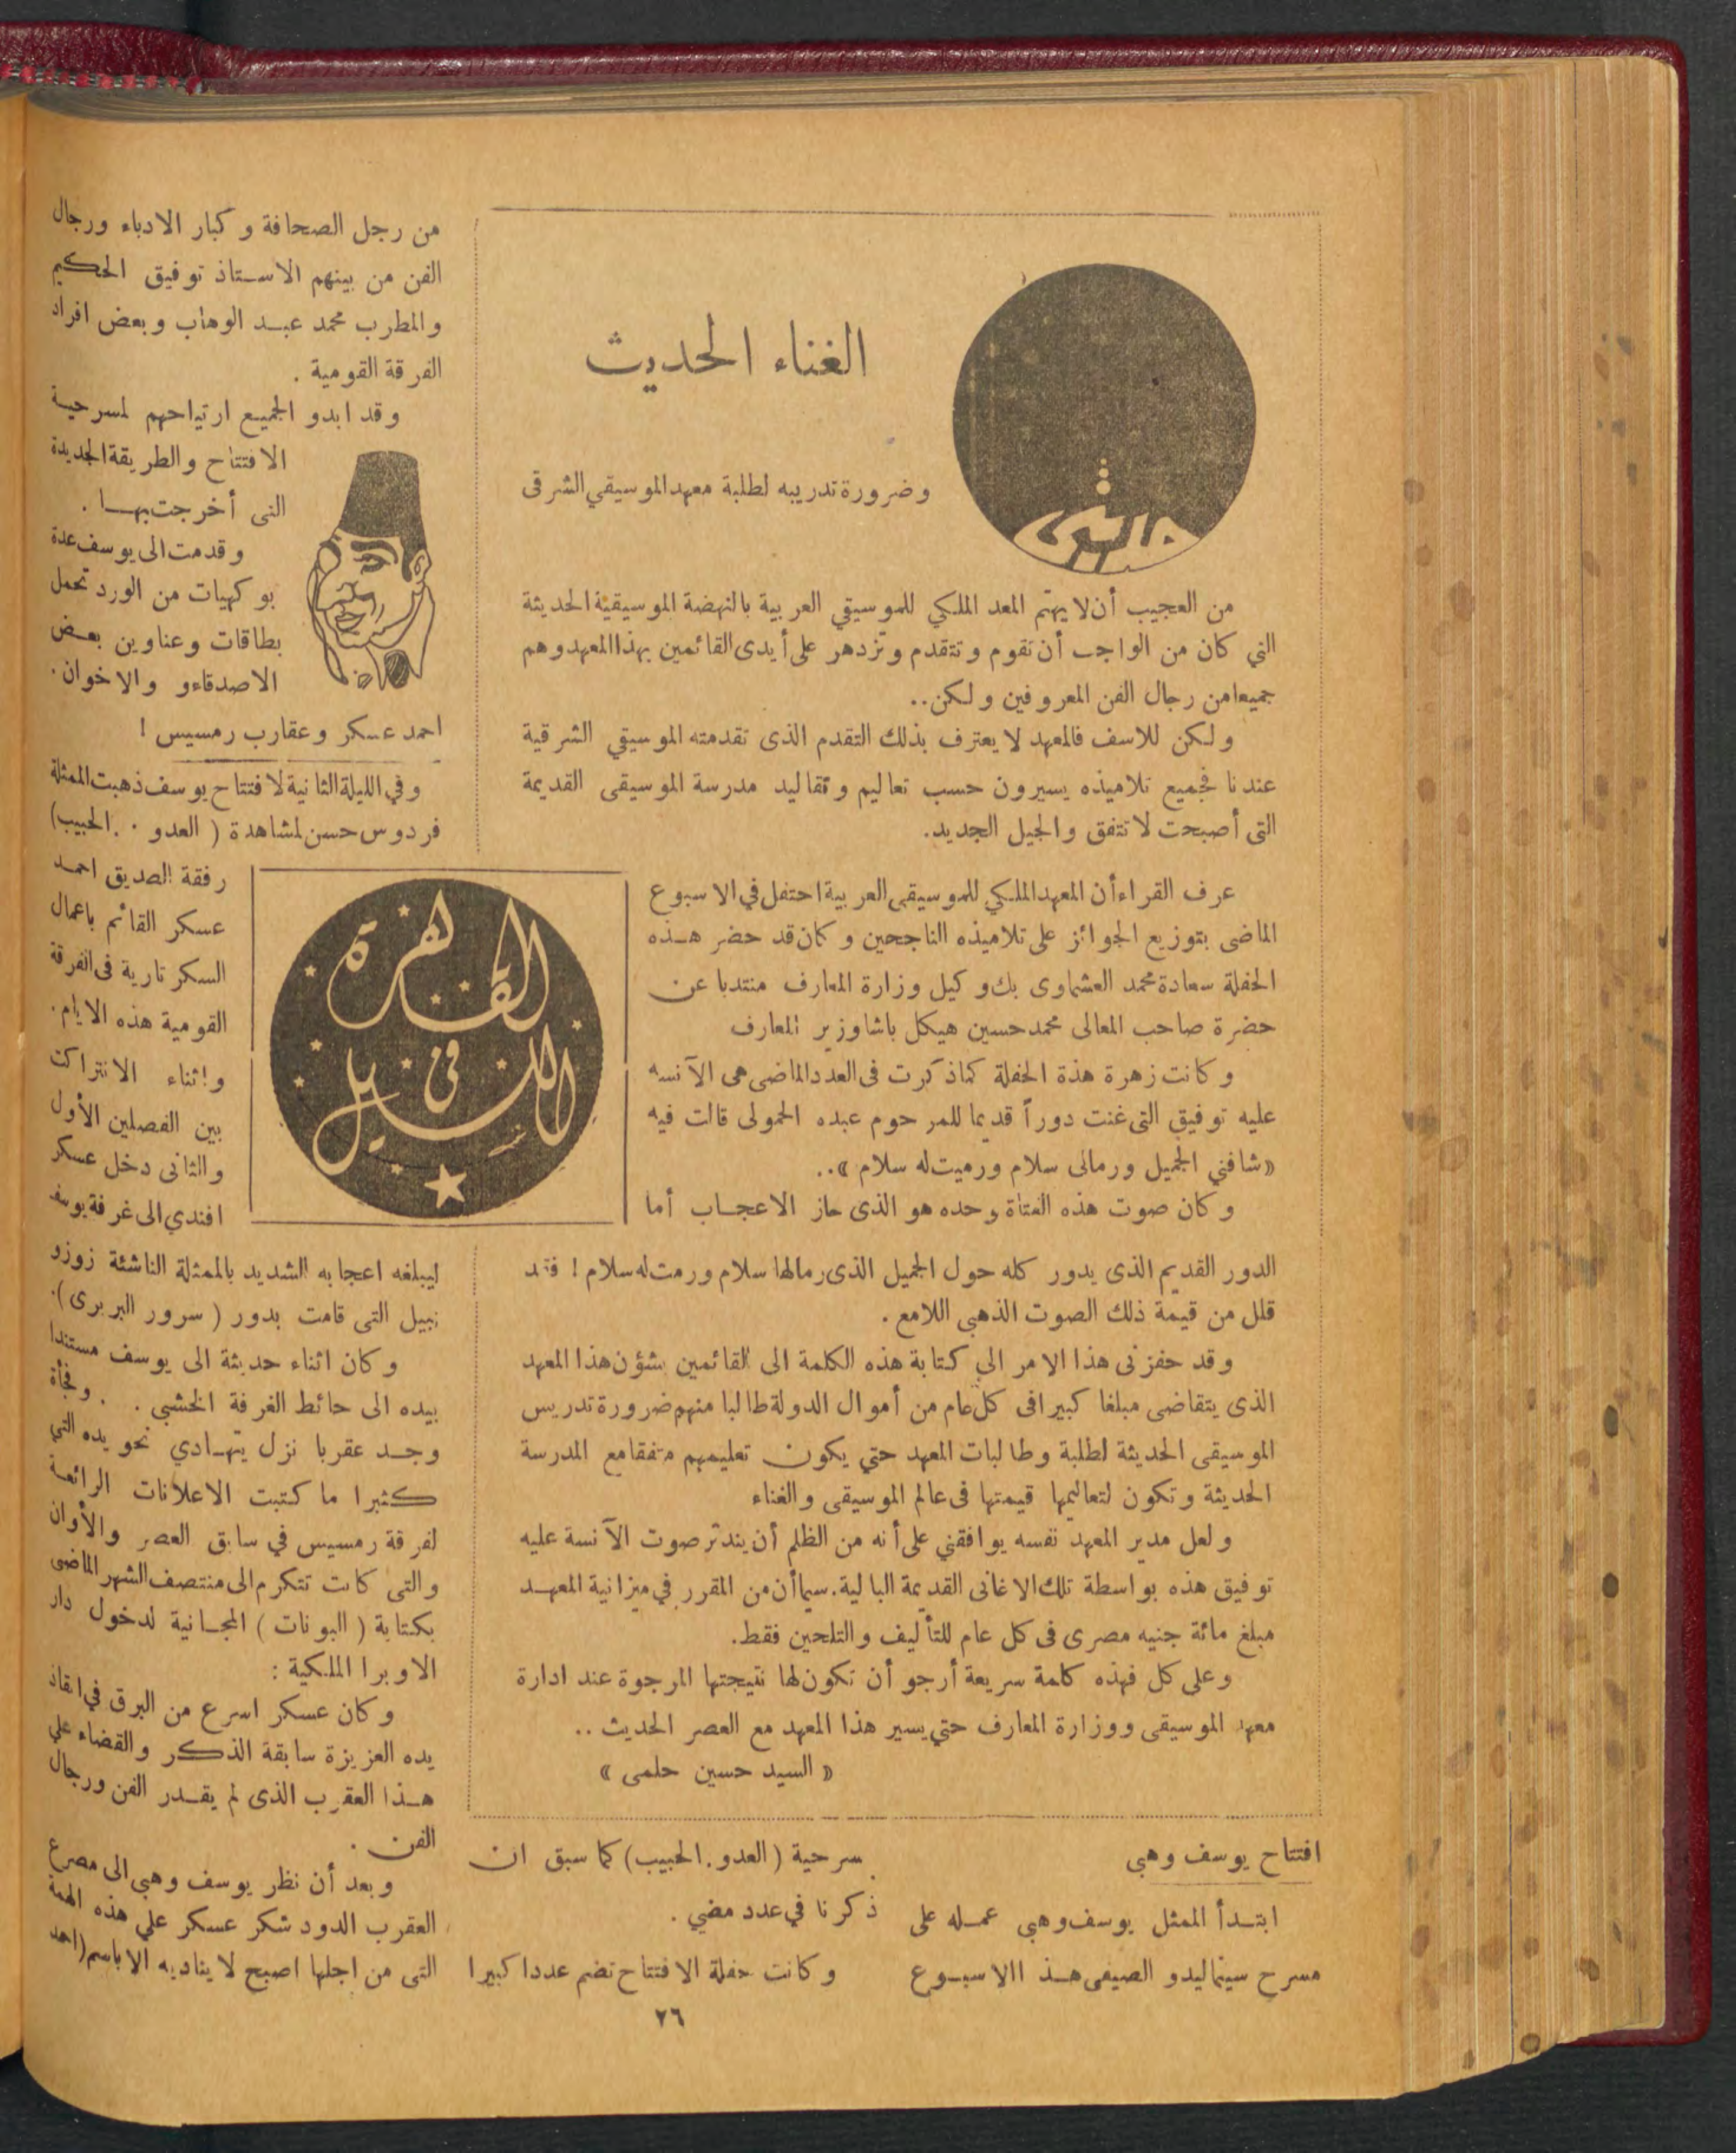 الغناء الحديث
وضرورة تدريبه لطلبة معهد الموسيقي الشرقى
من العجيب أن لا يهتم المعد الملكي للموسيقي العربية بالنهضة الموسيقية الحديثة
التي كان من الواجب أن تقوم وتتقدم وتزدهر على أيدى القائمين بهذا المعهد وهم
جميعا من رجال الفن المعروفين ولكن..
ولكن للاسف فالمعهد لا يعترف بذلك التقدم الذى تقدمته الموسيقي الشرقية
عندنا فجميع تلاميذه يسيرون حسب تعاليم وتقاليد مدرسة الموسيقى القديمة
التى أصبحت لا تتفق والجيل الجديد.
عرف القراء أن المعهد الملكي للموسيقى العربية احتفل في الاسبوع
الماضى بتوزيع الجوائز على تلاميذه الناجحين وكان قد حضر هذه
الحفلة سعادة محمد العشماوى بك وكيل وزارة المعارف منتدبا عن
حضرة صاحب المعالى محمد حسين هيكل باشا وزير المعارف
وكانت زهرة هذة الحفلة كماذكرت فى العدد الماضى هى الآنسه
عليه توفيق التى غنت دوراً قديما للمرحوم عبده الحمولى قالت فيه
«شافني الجميل ورمالى سلام ورميت له سلام»..
وكان صوت هذه الفتاة وحده هو الذى حاز الاعجاب أما
الدور القديم الذى يدور كله حول الجميل الذى رمالها سلام ورمت له سلام ! فقد
قلل من قيمة ذلك الصوت الذهبي اللامع .
وقد حفزنى هذا الامر الي كتابة هذه الكلمة الى القائمين بشؤن هذا المعهد
الذى يتقاضى مبلغا كبيرا فى كل عام من أموال الدولة طالبا منهم ضرورة تدريس
الموسيقى الحديثة لطلبة وطالبات المعهد حتي يكون تعليمهم متفقا مع المدرسة
الحديثة وتكون لتعاليمها قيمتها فى عالم الموسيقى والغناء
ولعل مدير المعهد نفسه يوافقني على أنه من الظلم أن يندثر صوت الآنسة عليه
توفيق هذه بواسطة تلك الاغانى القديمة البالية. سيما أن من المقرر في ميزانية المعهد
مبلغ مائة جنيه مصرى فى كل عام للتأليف والتلحين فقط.
وعلى كل فهذه كلمة سريعة أرجو أن تكون لها نتيجتها المرجوة عند ادارة
معهد الموسيقى ووزارة المعارف حتي يسير هذا المعهد مع العصر الحديث ..
« السيد حسين حلمى »
القاهرة
فى
الليل
افتتاح يوسف وهبى
ابتدأ الممثل يوسف وهبى عمله على
مسرح سينما ليدو الصيفى هذ االاسبوع
سرحية (العدو . الحبيب) كما سبق ان
ذكرنا في عدد مضي .
وكانت حفلة الافتتاح تضم عددا كبيرا
من رجل الصحافة وكبار الادباء ورجال
الفن من بينهم الاستاذ توفيق الحكيم
والمطرب محمد عبد الوهاب وبعض افراد
الفرقة القومية .
وقد ابدو الجميع ارتياحهم لمسرحية
الافتتاح والطريقة الجديدة
التى أخرجت بها .
وقدمت الى يوسف عدة
بوكهيات من الورد تحمل
بطاقات وعناوين بعض
الاصدقاءو والاخوان .
احمد عسكر وعقارب رمسيس !
وفي الليلة الثانية لافتتاح يوسف ذهبت الممثلة
فردوس حسن لمشاهدة ( العدو . . الحبيب)
رفقة الصديق احمد
عسكر القائم باعمال
السكرتارية فى الفرقة
القومية هذه الايام .
واثناء الانتراكت
بين الفصلين الأول
والثانى دخل عسكر
افندي الى غرفة يوسف
ليبلغه اعجابه الشديد بالممثلة الناشئة زوزو
نبيل التى قامت بدور ( سرور البربرى) .
وكان اثناء حديثة الى يوسف مستندا
بيده الى حائط الغرفة الخشبي . . وفجأة
وجد عقربا نزل يتهادي نحو يده التي
كثيرا ما كتبت الاعلانات الرائعة
لفرقة رمسيس في سابق العصر والأوان
والتى كانت تتكرم الى منتصف الشهر الماضى
بكتابة ( البونات ) المجانية لدخول دار
الاوبرا الملكية :
وكان عسكر اسرع من البرق في انقاذ
يده العزيزة سابقة الذكر والقضاء علي
هذا العقرب الذى لم يقدر الفن ورجال
الفن .
وبعد أن نظر يوسف وهبي الى مصرع
العقرب الدود شكر عسكر علي هذه الهمة
التى من اجلها اصبح لا يناديه الا باسم (احمد
٢٦